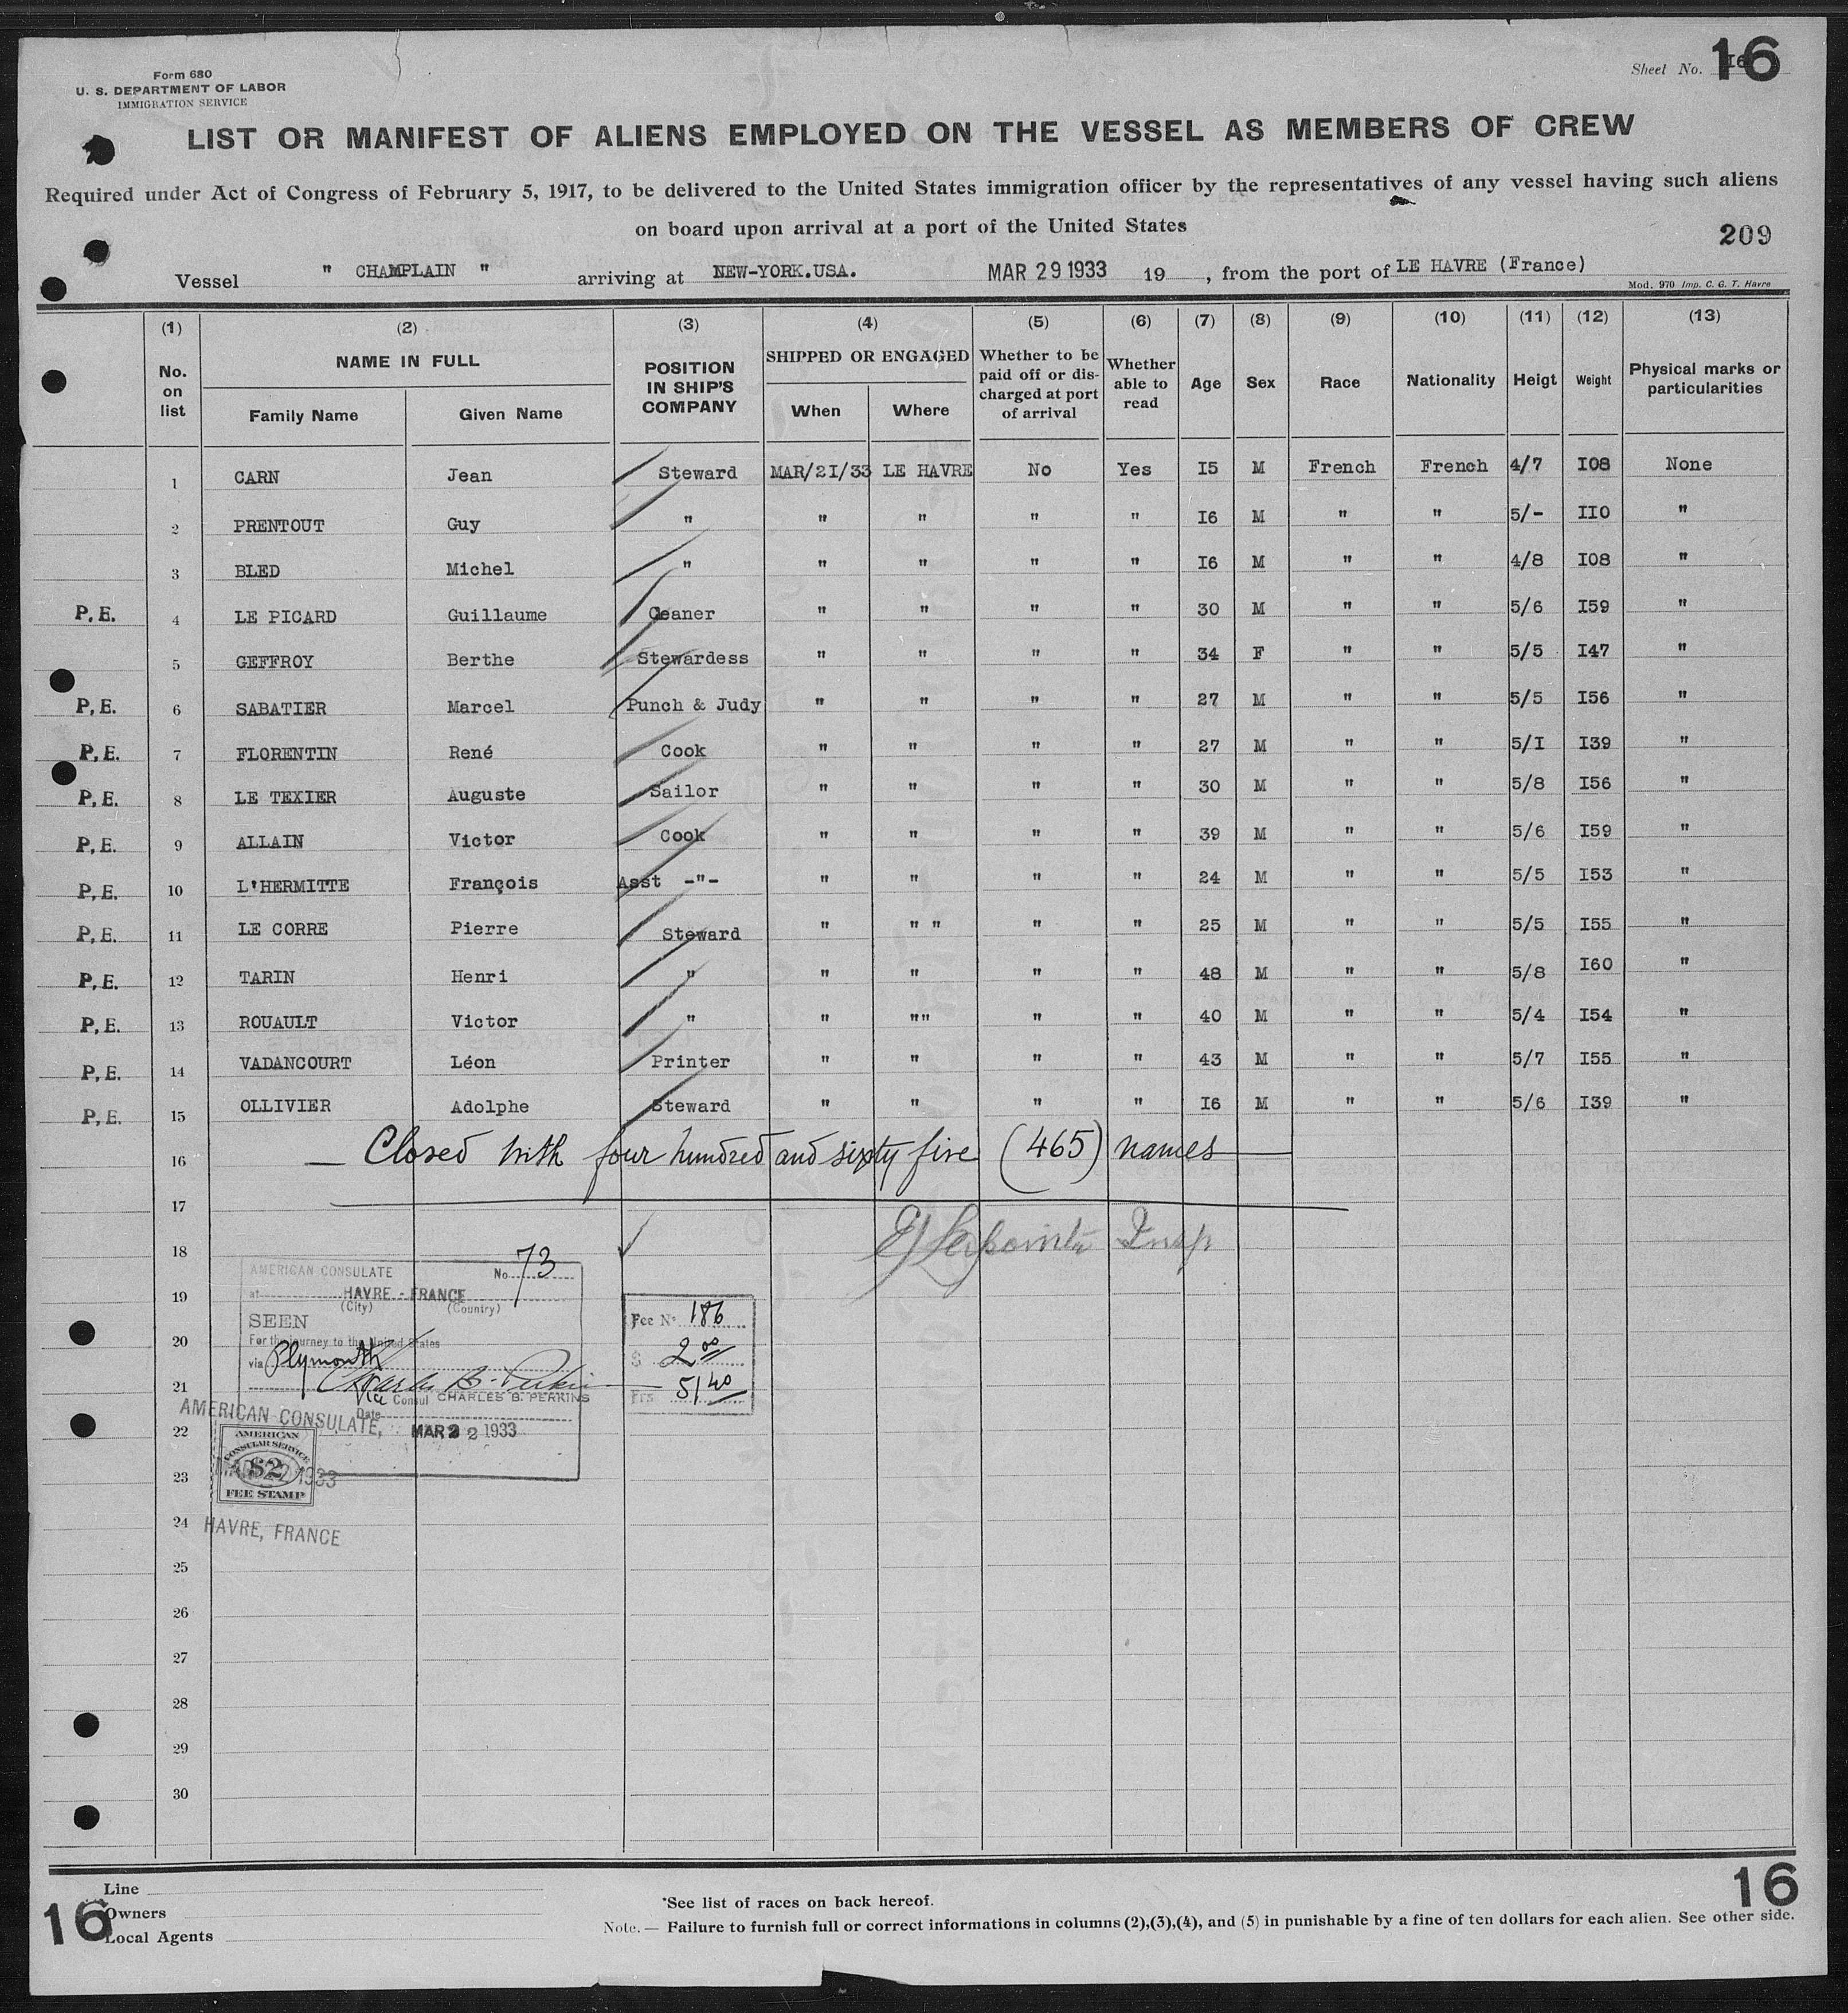 Form 680
U. S. DEPARTMENT OF LABOR
IMMIGRATION SERVICE
Sheet No. 16
16
LIST OR MANIFEST OF ALIENS EMPLOYED ON THE VESSEL AS MEMBERS OF CREW
Required under Act of Congress of February 5, 1917, to be delivered to the United States immigration officer by the representatives of any vessel having such aliens
on board upon arrival at a port of the United States
209
Vessel " CHAMPLAIN " arriving at NEW-YORK.USA. MAR 29 1933 19 , from the port of LE HAVRE (France)
Mod. 970 Imp. C. G. T. Havre
(1) (2) (3) (4) (5) (6) (7) (8) (9) (10) (11) (12) (13)
No. on list NAME IN FULL Family Name Given Name POSITION IN SHIP'S COMPANY SHIPPED OR ENGAGED When Where Whether to be paid off or discharged at port of arrival Whether able to read Age Sex Race Nationality Heigt Weight Physical marks or particularities
1 CARN Jean Steward MAR/21/33 LE HAVRE No Yes I5 M French French 4/7 I08 None
2 PRENTOUT Guy " " " " " I6 M " " 5/- II0 "
3 BLED Michel " " " " " I6 M " " 4/8 I08 "
P.E. 4 LE PICARD Guillaume Ceaner " " " " 30 M " " 5/6 I59 "
5 GEFFROY Berthe Stewardess " " " " 34 F " " 5/5 I47 "
P.E. 6 SABATIER Marcel Punch & Judy " " " " 27 M " " 5/5 I56 "
P.E. 7 FLORENTIN René Cook " " " " 27 M " " 5/I I39 "
P.E. 8 LE TEXIER Auguste Sailor " " " " 30 M " " 5/8 I56 "
P.E. 9 ALLAIN Victor Cook " " " " 39 M " " 5/6 I59 "
P.E. 10 L'HERMITTE François Asst -"- " " " " 24 M " " 5/5 I53 "
P.E. 11 LE CORRE Pierre Steward " " " " " 25 M " " 5/5 I55 "
P.E. 12 TARIN Henri " " " " " 48 M " " 5/8 I60 "
P.E. 13 ROUAULT Victor " " "" " " 40 M " " 5/4 I54 "
P.E. 14 VADANCOURT Léon Printer " " " " 43 M " " 5/7 I55 "
P.E. 15 OLLIVIER Adolphe Steward " " " " I6 M " " 5/6 I39 "
16 Closed with four hundred and sixty five (465) names
17
18 Insp
AMERICAN CONSULATE No. 73
19 at HAVRE - FRANCE
(City) (Country)
SEEN
Fee No 186
20 For the journey to the United States
via Plymouth
$ 2.00
21 Charles B. Perkins
Vice Consul CHARLES B. PERKINS
Frs 51.40
Date MAR 22 1933
22 AMERICAN CONSULATE,
AMERICAN CONSULAR SERVICE
23 $2
MAR 22 1933
FEE STAMP
24 HAVRE, FRANCE
25
26
27
28
29
30
Line
Owners
Local Agents
16
*See list of races on back hereof.
16
Note. — Failure to furnish full or correct informations in columns (2),(3),(4), and (5) in punishable by a fine of ten dollars for each alien. See other side.